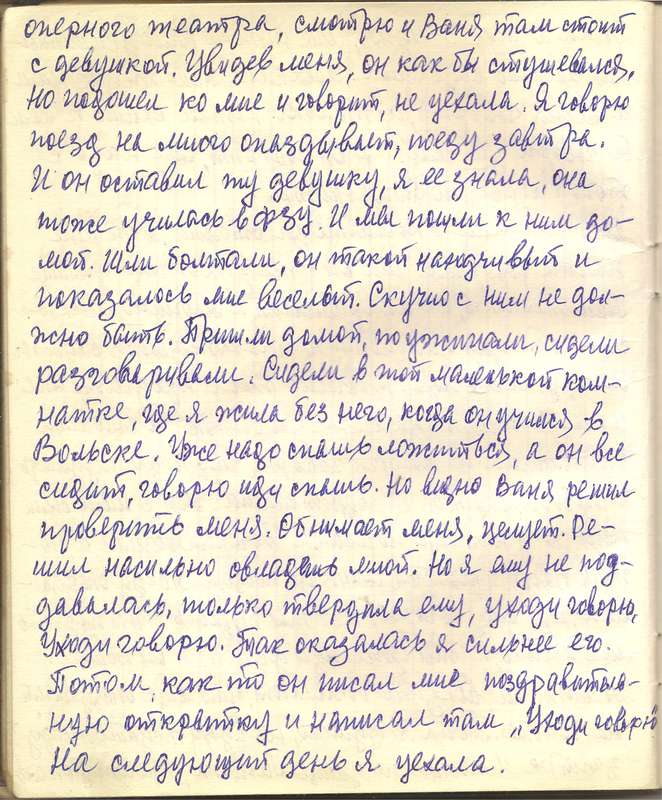 оперного театра, смотрю и Ваня там стоит
с девушкой. Увидев меня, он как бы стушевался,
но подошел ко мне и говорит, не уехала. Я говорю
поезд на много опаздывает, поеду завтра.
И он оставил эту девушку, я ее знала, она
тоже училась в ФЗУ. И мы пошли к ним до-
мой. Шли болтали, он такой находчивый и
показалось мне веселый. Скучно с ним не дол-
жно быть. Пришли домой, поужинали, сидели
разговаривали. Сидели в той маленькой ком-
натке, где я жила без него, когда он учился в
Вольске. Уже надо спать ложиться, а он все
сидит, говорю иди спать. Но видно Ваня решил
проверить меня. Обнимает меня, целует. Ре-
шил насильно овладеть мной. Но я ему не под-
давалась, только твердила ему, уходи говорю,
Уходи говорю. Так оказалась я сильнее его.
Потом, как то он писал мне поздравитель-
ную открытку и написал там „Уходи говорю"
На следующий день я уехала.